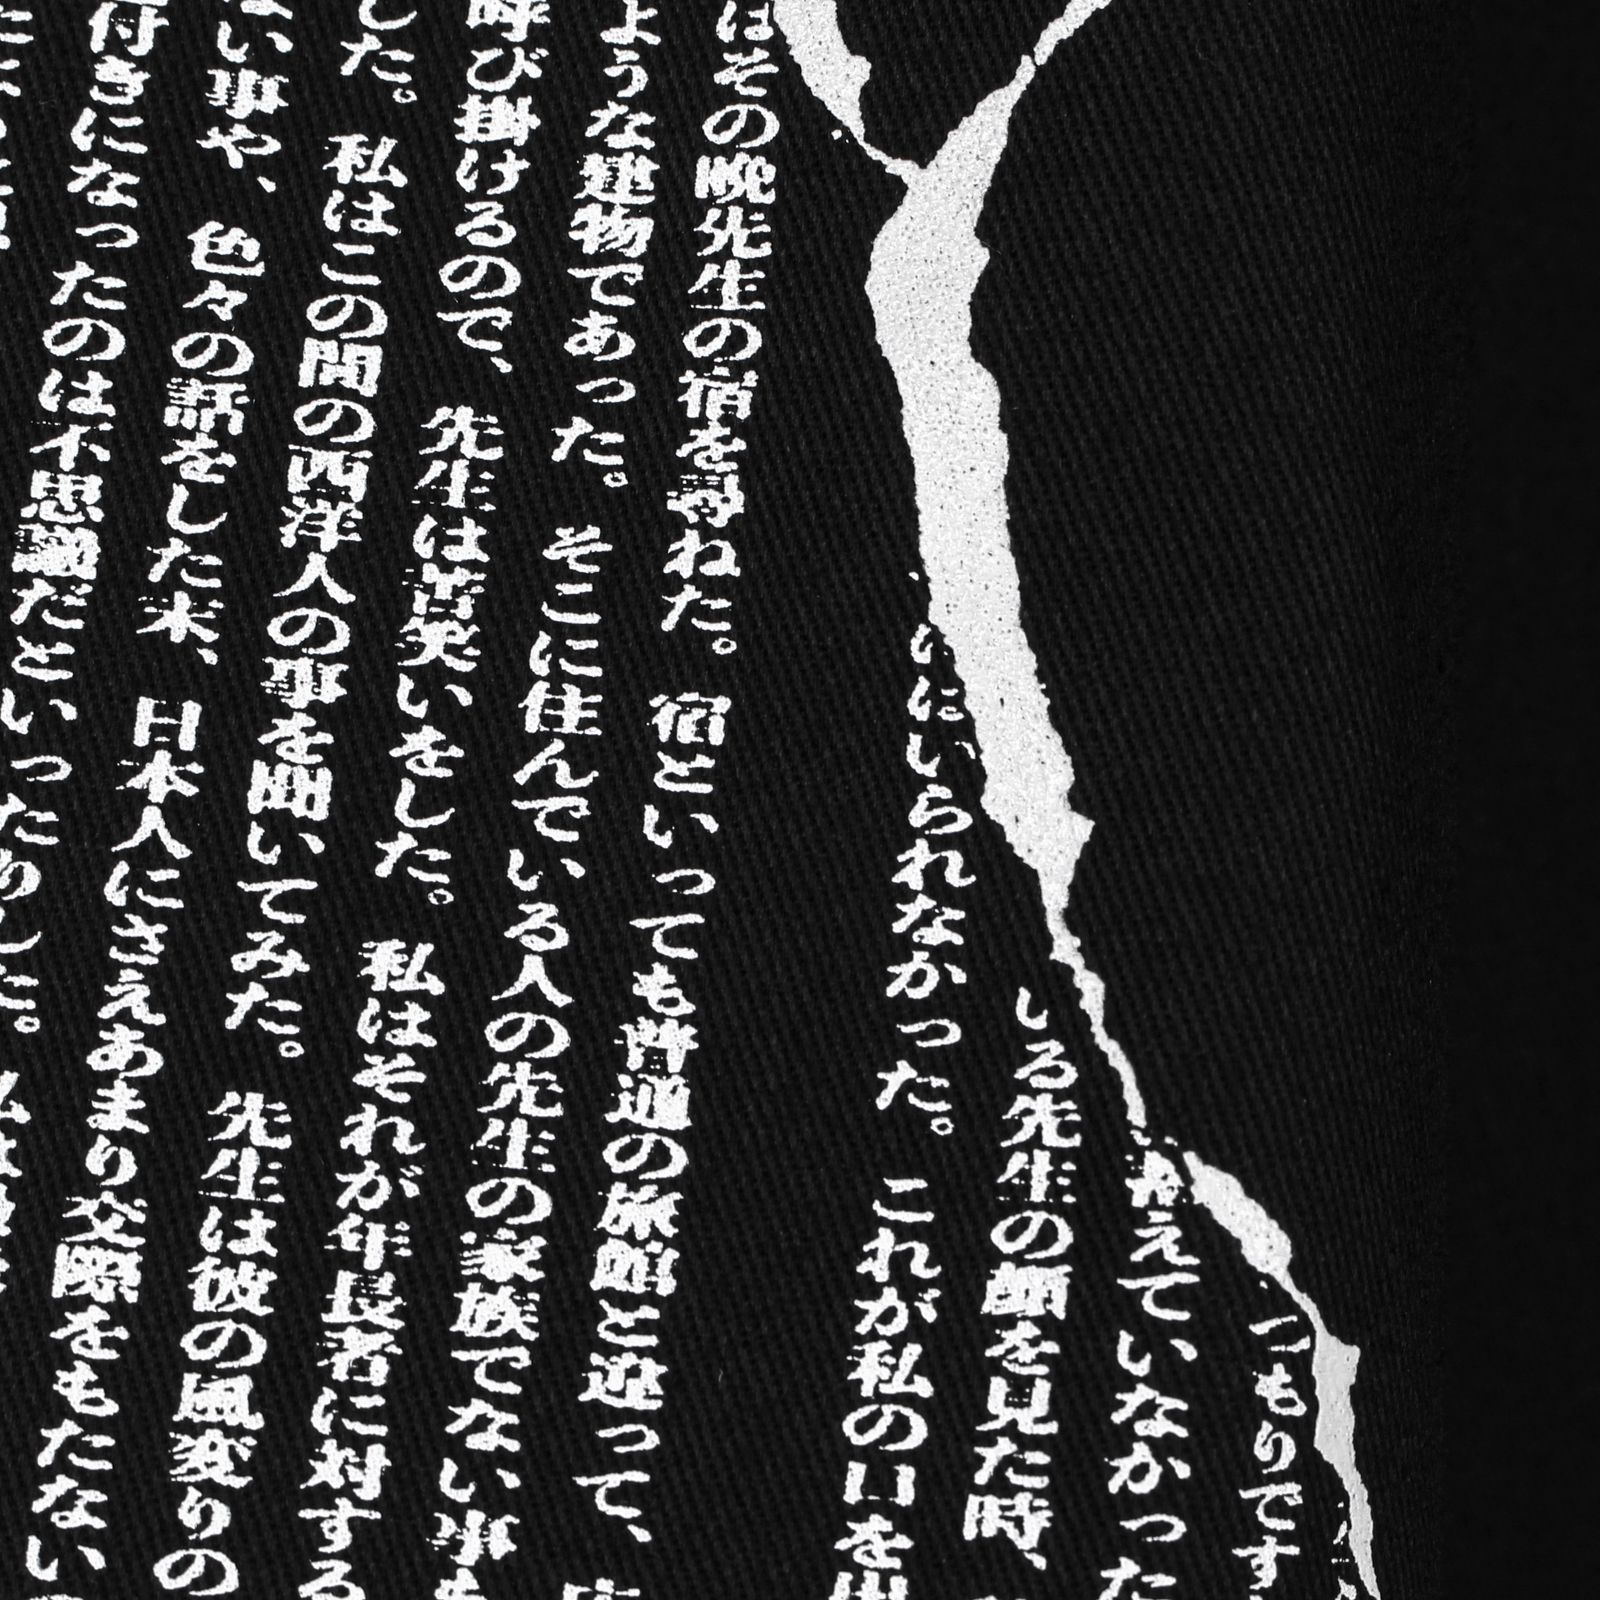 つもりです
えていなかった
いる先生の顔を見た時、
にいられなかった。これが私の口を出
はその晩先生の宿を尋ねた。宿といっても普通の旅館と違って、
ような建物であった。そこに住んでいる人の先生の家族でない事
呼び掛けるので、先生は苦笑いをした。私はそれが年長者に対する
した。私はこの間の西洋人の事を聞いてみた。先生は彼の風変りの
ない事や、色々の話をした末、日本人にさえあまり交際をもたない
付きになったのは不思議だといった